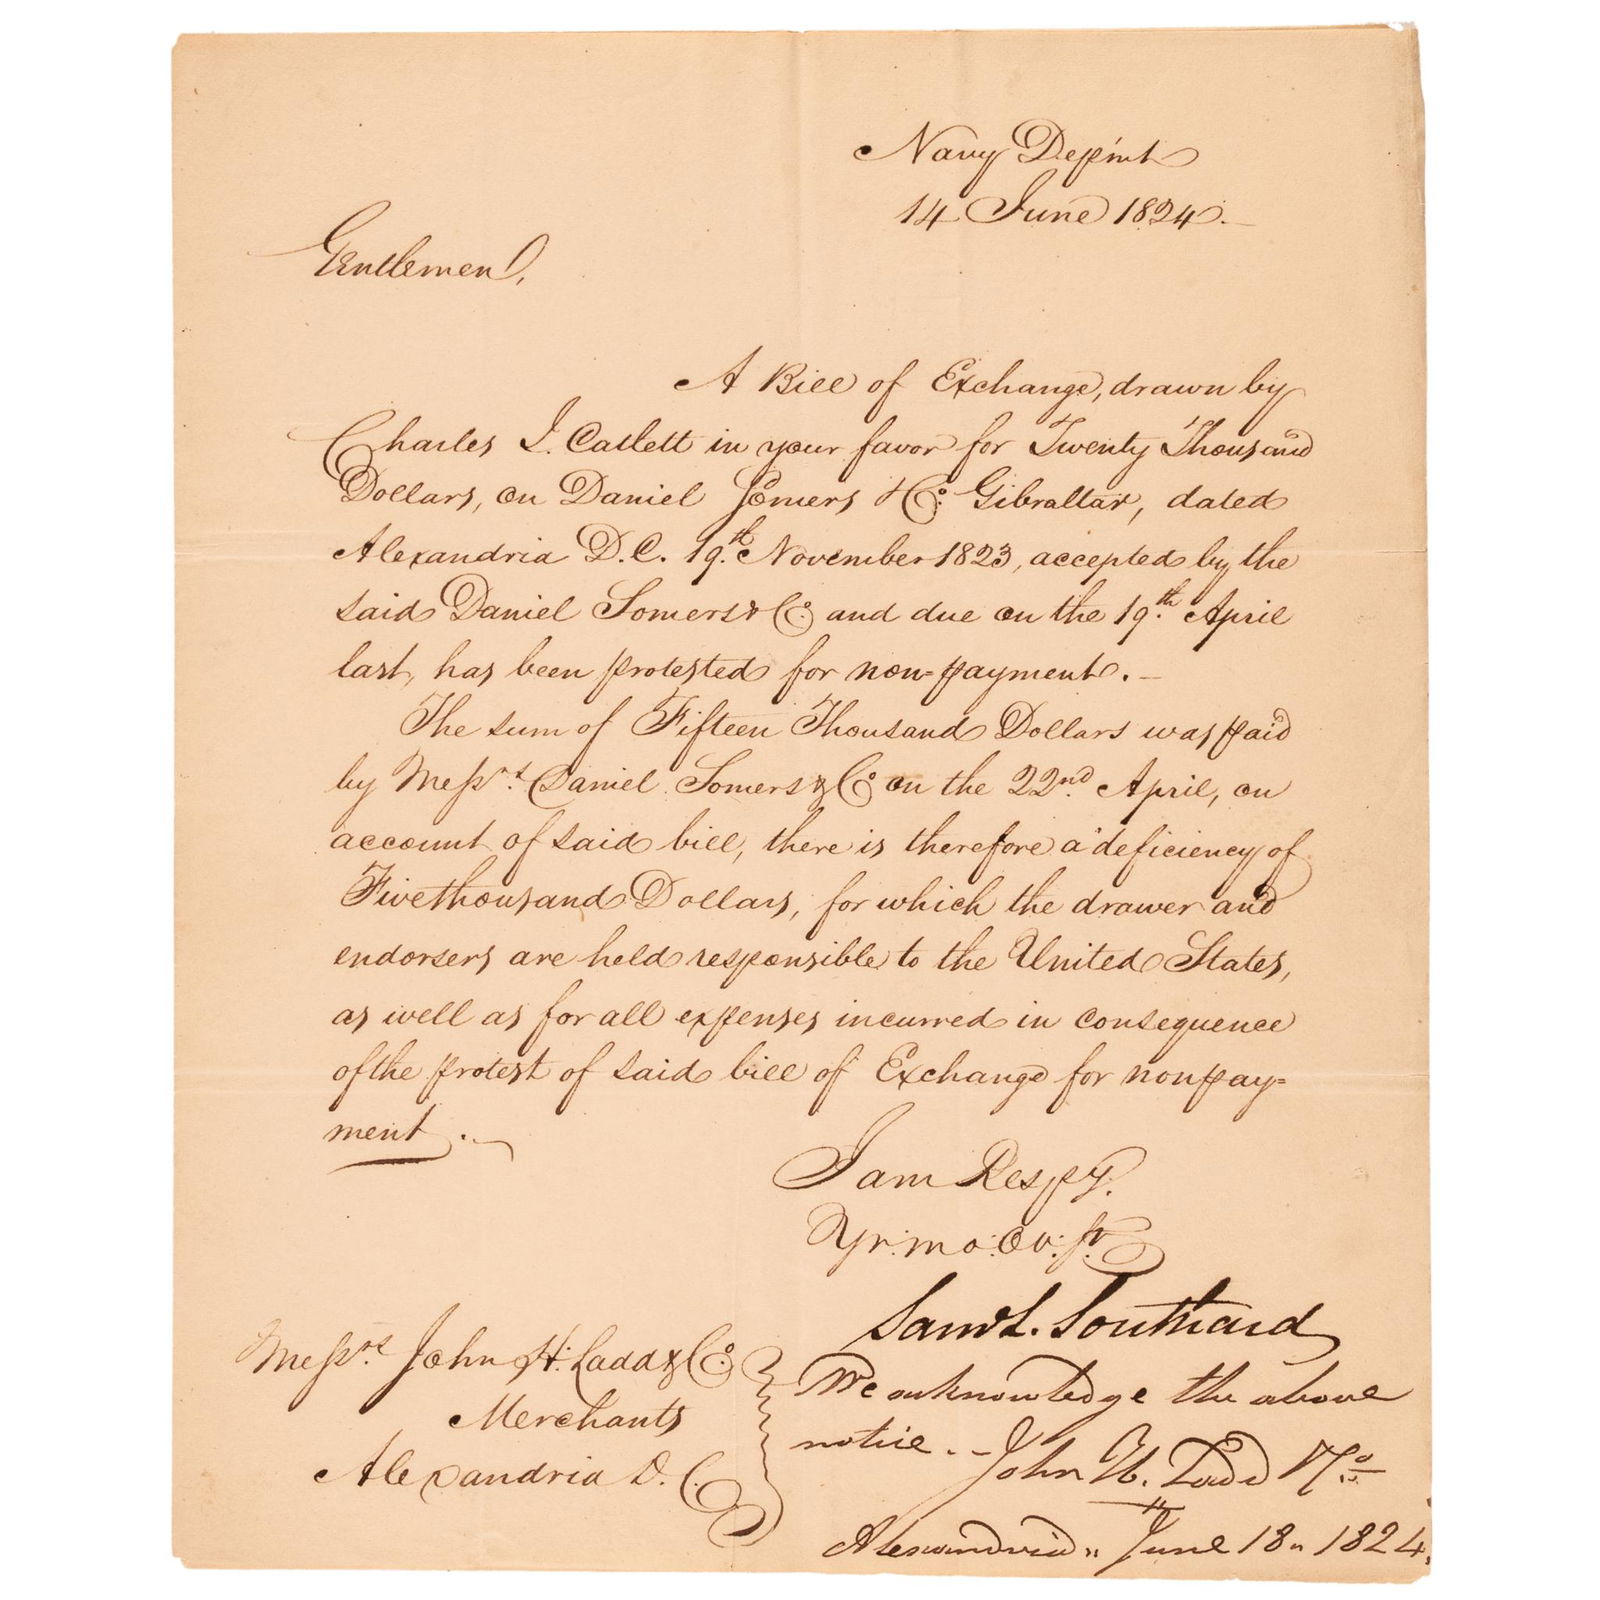 Navy Depmt
14 June 1824.
Gentlemen,
A Bill of Exchange, drawn by
Charles I. Catlett in your favor for Twenty Thousand
Dollars, on Daniel Somers & Co. Gibraltar, dated
Alexandria D.C. 19th November 1823, accepted by the
said Daniel Somers & Co. and due on the 19th April
last, has been protested for non=payment. —
The sum of Fifteen Thousand Dollars was paid
by Messrs. Daniel Somers & Co on the 22nd April, on
account of said bill, there is therefore a deficiency of
Five thousand Dollars, for which the drawer and
endorsers are held responsible to the United States,
as well as for all expenses incurred in consequence
of the protest of said bill of Exchange for nonpay=
ment. —
I am Respy.
Yr: mo: Ob: St
Saml L. Southard
Messrs. John H. Ladd & Co.
Merchants
Alexandria D. C.
We acknowledge the above
notice. — John H. Ladd & Co
Alexandria " June 18 " 1824.